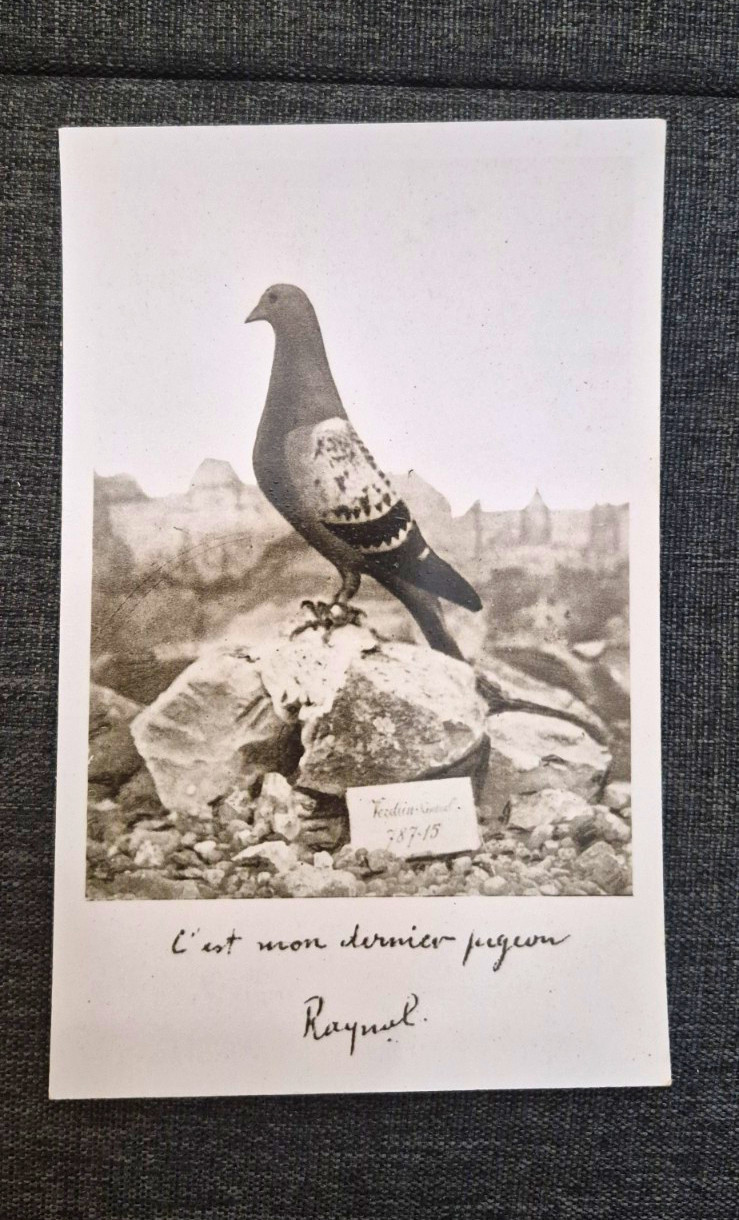 Verdun
787-15
C'est mon dernier pigeon
Raynal.